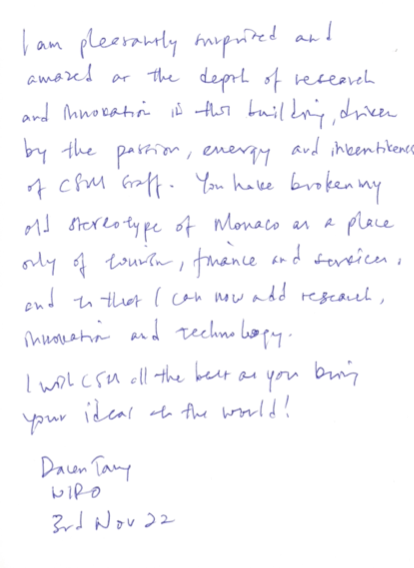 I am pleasantly surprized and
amazed at the depth of research
and innovation in this building, driven
by the passion, energy and inventiveness
of CSM staff. You have broken my
old stereotype of Monaco as a place
only of tourism, finance and services,
and to that I can now add research,
innovation and technology.
I wish CSM all the best as you bring
your ideas to the world!
Daren Tang
WIPO
3rd Nov 22